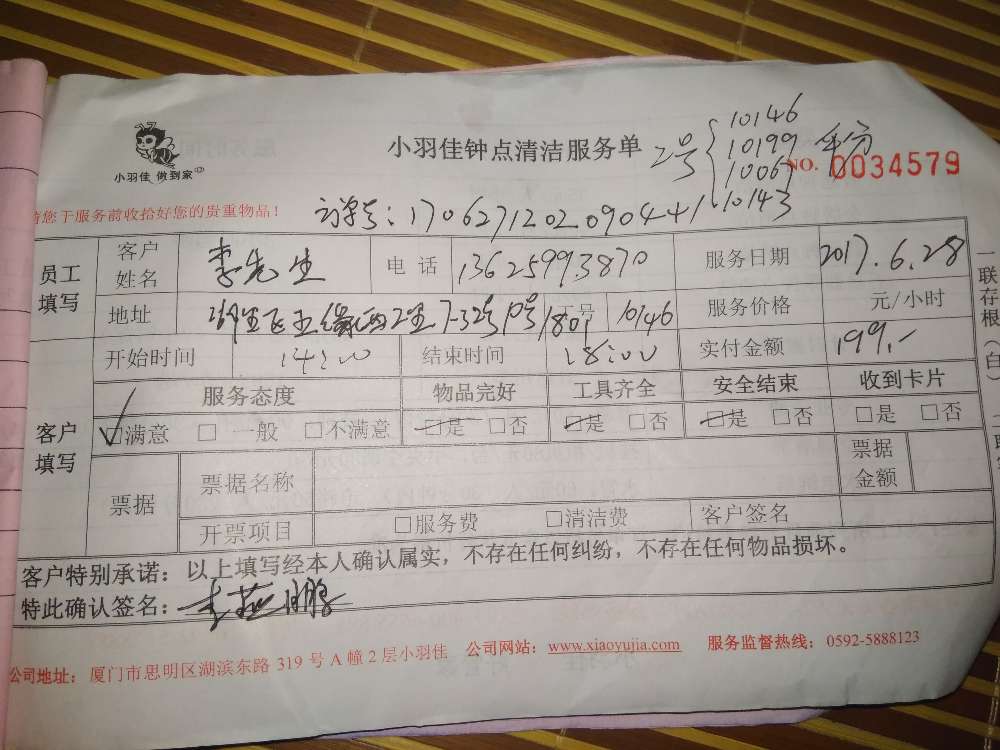 小羽佳 做到家
小羽佳钟点清洁服务单
2号 10146
10199
10067
10143
平分
NO. 0034579
请您于服务前收拾好您的贵重物品！
订单号：1706271202090441
员工填写
客户姓名 李先生 电话 13625993870 服务日期 2017.6.28
地址 号 10146 服务价格 元/小时
开始时间 14:00 结束时间 18:00 实付金额 199.-
客户填写
服务态度 物品完好 工具齐全 安全结束 收到卡片
☑满意 □ 一般 □不满意 ☑是 □否 ☑是 □否 ☑是 □否 □是 □否
票据 票据名称 票据金额
开票项目 □服务费 □清洁费 客户签名
客户特别承诺：以上填写经本人确认属实，不存在任何纠纷，不存在任何物品损坏。
特此确认签名：
公司地址：厦门市思明区湖滨东路 319 号 A 幢 2 层小羽佳 公司网站：www.xiaoyujia.com 服务监督热线：0592-5888123
一联存根（白）